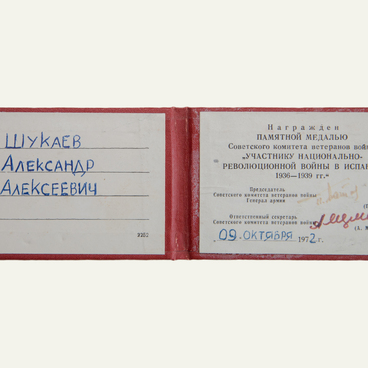 ШУКАЕВ
АЛЕКСАНДР
АЛЕКСЕЕВИЧ
Награжден
ПАМЯТНОЙ МЕДАЛЬЮ
Советского комитета ветеранов вой
„УЧАСТНИКУ НАЦИОНАЛЬНО-
РЕВОЛЮЦИОННОЙ ВОЙНЫ В ИСПА
1936—1939 гг."
Председатель
Советского комитета ветеранов войны
Генерал армии
Ответственный секретарь
Советского комитета ветеранов войны
„09„ ОКТЯБРЯ 1972 г.